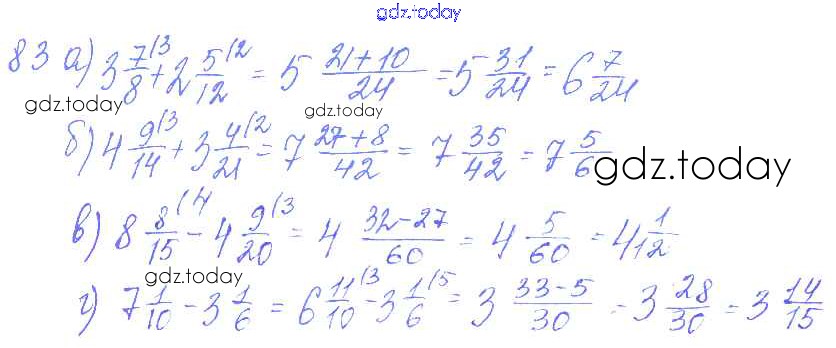 gdz.today
83 а) 3 7/8 (3 + 2 5/12 (2 = 5 (21+10)/24 = 5 31/24 = 6 7/24
gdz.today gdz.today
б) 4 9/14 (3 + 3 4/21 (2 = 7 (27+8)/42 = 7 35/42 = 7 5/6
gdz.today
в) 8 8/15 (4 - 4 9/20 (3 = 4 (32-27)/60 = 4 5/60 = 4 1/12
gdz.today
г) 7 1/10 - 3 1/6 = 6 11/10 (3 - 3 1/6 (5 = 3 (33-5)/30 = 3 28/30 = 3 14/15